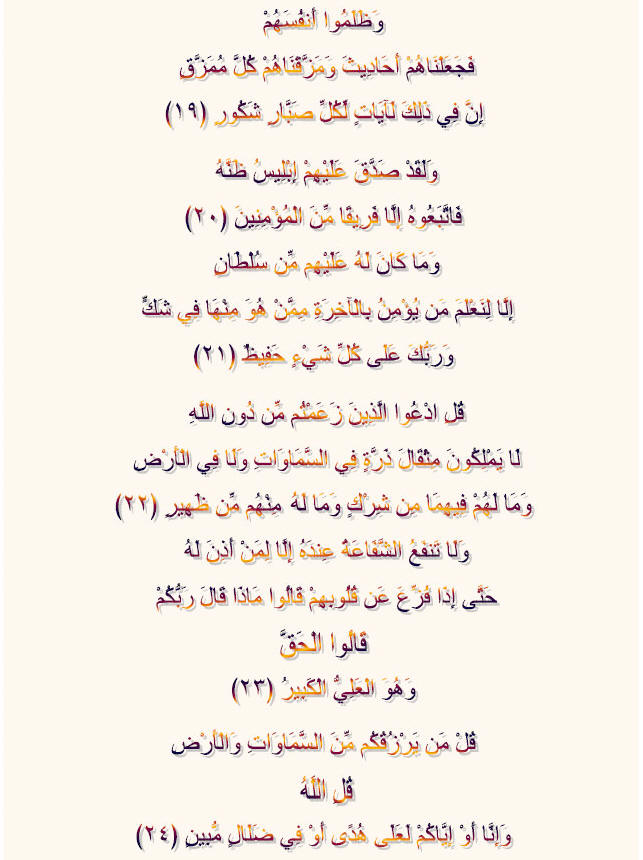 وَظَلَمُوا أَنفُسَهُمْ
فَجَعَلْنَاهُمْ أَحَادِيثَ وَمَزَّقْنَاهُمْ كُلَّ مُمَزَّقٍ
إِنَّ فِي ذَلِكَ لَآيَاتٍ لِّكُلِّ صَبَّارٍ شَكُورٍ (١٩)
وَلَقَدْ صَدَّقَ عَلَيْهِمْ إِبْلِيسُ ظَنَّهُ
فَاتَّبَعُوهُ إِلَّا فَرِيقًا مِّنَ الْمُؤْمِنِينَ (٢٠)
وَمَا كَانَ لَهُ عَلَيْهِم مِّن سُلْطَانٍ
إِلَّا لِنَعْلَمَ مَن يُؤْمِنُ بِالْآخِرَةِ مِمَّنْ هُوَ مِنْهَا فِي شَكٍّ
وَرَبُّكَ عَلَى كُلِّ شَيْءٍ حَفِيظٌ (٢١)
قُلِ ادْعُوا الَّذِينَ زَعَمْتُم مِّن دُونِ اللَّهِ
لَا يَمْلِكُونَ مِثْقَالَ ذَرَّةٍ فِي السَّمَاوَاتِ وَلَا فِي الْأَرْضِ
وَمَا لَهُمْ فِيهِمَا مِن شِرْكٍ وَمَا لَهُ مِنْهُم مِّن ظَهِيرٍ (٢٢)
وَلَا تَنفَعُ الشَّفَاعَةُ عِندَهُ إِلَّا لِمَنْ أَذِنَ لَهُ
حَتَّى إِذَا فُزِّعَ عَن قُلُوبِهِمْ قَالُوا مَاذَا قَالَ رَبُّكُمْ
قَالُوا الْحَقَّ
وَهُوَ الْعَلِيُّ الْكَبِيرُ (٢٣)
قُلْ مَن يَرْزُقُكُم مِّنَ السَّمَاوَاتِ وَالْأَرْضِ
قُلِ اللَّهُ
وَإِنَّا أَوْ إِيَّاكُمْ لَعَلَى هُدًى أَوْ فِي ضَلَالٍ مُّبِينٍ (٢٤)